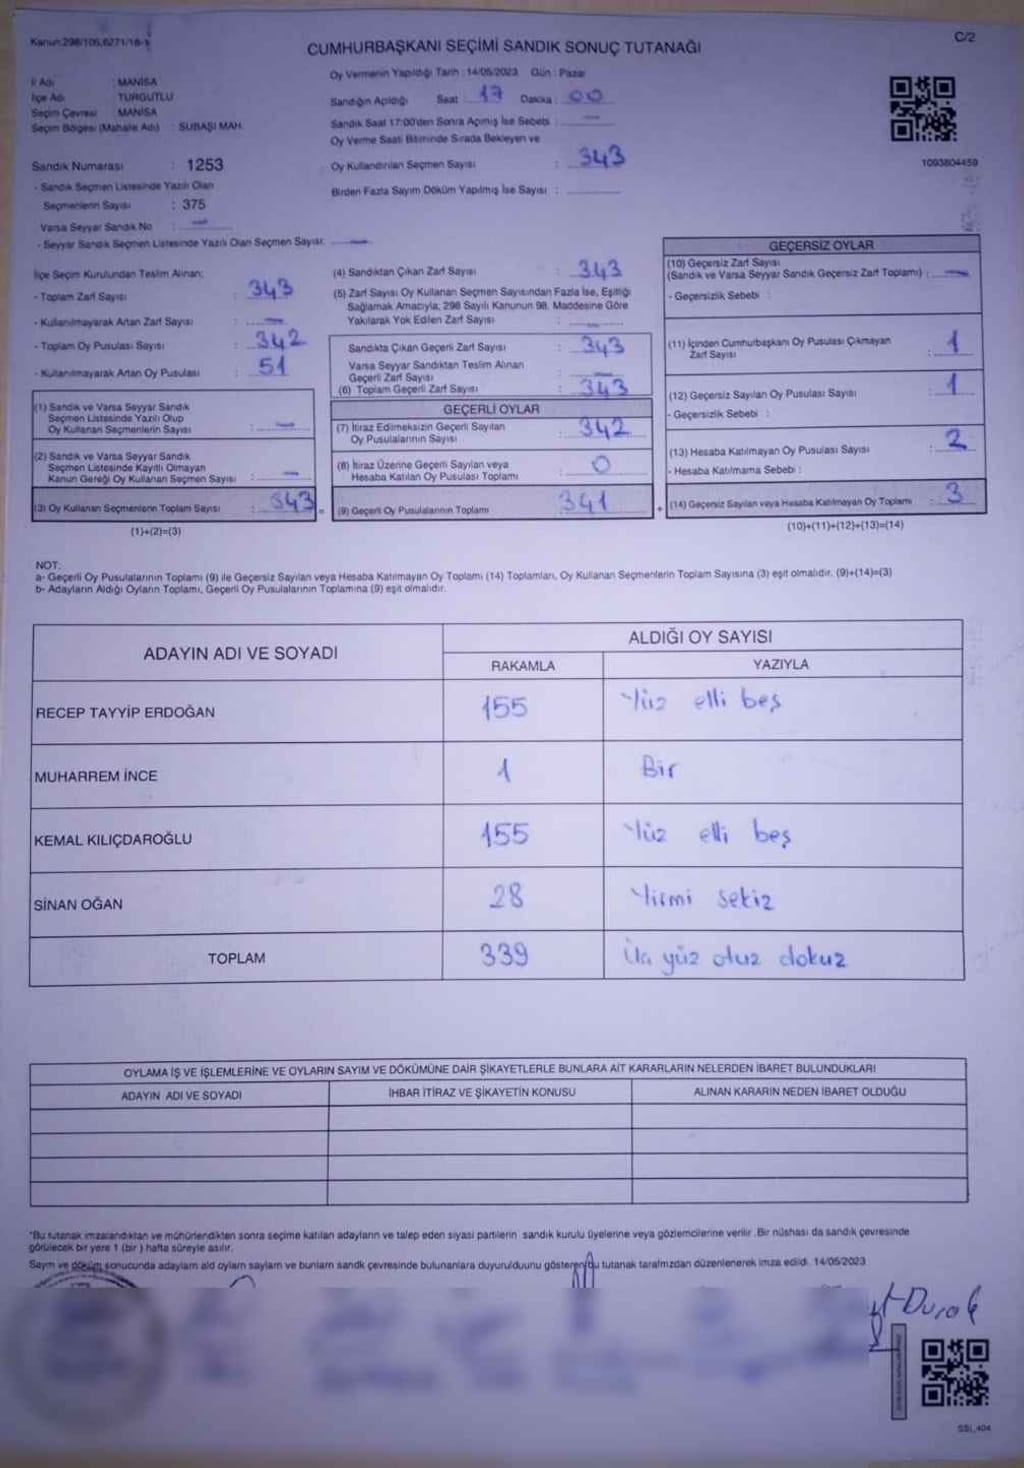 Kanun:298/105,6271/16-1
C/2
CUMHURBAŞKANI SEÇİMİ SANDIK SONUÇ TUTANAĞI
İl Adı : MANİSA
İlçe Adı : TURGUTLU
Seçim Çevresi : MANİSA
Seçim Bölgesi (Mahalle Adı) : SUBAŞI MAH.
Oy Vermenin Yapıldığı Tarih : 14/05/2023 Gün : Pazar
Sandığın Açıldığı Saat : 17 Dakika : 00
Sandık Saat 17:00'den Sonra Açılmış İse Sebebi : —
Oy Verme Saati Bitiminde Sırada Bekleyen ve
Oy Kullandırılan Seçmen Sayısı : 343
Birden Fazla Sayım Döküm Yapılmış İse Sayısı :
1093804459
Sandık Numarası : 1253
- Sandık Seçmen Listesinde Yazılı Olan
Seçmenlerin Sayısı : 375
Varsa Seyyar Sandık No : —
- Seyyar Sandık Seçmen Listesinde Yazılı Olan Seçmen Sayısı: —
İlçe Seçim Kurulundan Teslim Alınan;
- Toplam Zarf Sayısı : 343
- Kullanılmayarak Artan Zarf Sayısı : —
- Toplam Oy Pusulası Sayısı : 342
- Kullanılmayarak Artan Oy Pusulası : 51
(1) Sandık ve Varsa Seyyar Sandık
Seçmen Listesinde Yazılı Olup
Oy Kullanan Seçmenlerin Sayısı : —
(2) Sandık ve Varsa Seyyar Sandık
Seçmen Listesinde Kayıtlı Olmayan
Kanun Gereği Oy Kullanan Seçmen Sayısı : —
(3) Oy Kullanan Seçmenlerin Toplam Sayısı : 343 =
(1)+(2)=(3)
(4) Sandıktan Çıkan Zarf Sayısı : 343
(5) Zarf Sayısı Oy Kullanan Seçmen Sayısından Fazla İse, Eşitliği
Sağlamak Amacıyla, 298 Sayılı Kanunun 98. Maddesine Göre
Yakılarak Yok Edilen Zarf Sayısı : —
Sandıkta Çıkan Geçerli Zarf Sayısı : 343
Varsa Seyyar Sandıktan Teslim Alınan
Geçerli Zarf Sayısı : —
(6) Toplam Geçerli Zarf Sayısı : 343
GEÇERLİ OYLAR
(7) İtiraz Edilmeksizin Geçerli Sayılan
Oy Pusulalarının Sayısı : 342
(8) İtiraz Üzerine Geçerli Sayılan veya
Hesaba Katılan Oy Pusulası Toplamı : 0
(9) Geçerli Oy Pusulalarının Toplamı : 341 +
GEÇERSİZ OYLAR
(10) Geçersiz Zarf Sayısı
(Sandık ve Varsa Seyyar Sandık Geçersiz Zarf Toplamı) : —
- Geçersizlik Sebebi :
(11) İçinden Cumhurbaşkanı Oy Pusulası Çıkmayan
Zarf Sayısı : 1
(12) Geçersiz Sayılan Oy Pusulası Sayısı : 1
- Geçersizlik Sebebi :
(13) Hesaba Katılmayan Oy Pusulası Sayısı : 2
- Hesaba Katılmama Sebebi :
(14) Geçersiz Sayılan veya Hesaba Katılmayan Oy Toplamı : 3
(10)+(11)+(12)+(13)=(14)
NOT:
a- Geçerli Oy Pusulalarının Toplamı (9) ile Geçersiz Sayılan veya Hesaba Katılmayan Oy Toplamı (14) Toplamları, Oy Kullanan Seçmenlerin Toplam Sayısına (3) eşit olmalıdır. (9)+(14)=(3)
b- Adayların Aldığı Oyların Toplamı, Geçerli Oy Pusulalarının Toplamına (9) eşit olmalıdır.
ADAYIN ADI VE SOYADI
ALDIĞI OY SAYISI
RAKAMLA YAZIYLA
RECEP TAYYİP ERDOĞAN 155 Yüz elli beş
MUHARREM İNCE 1 Bir
KEMAL KILIÇDAROĞLU 155 Yüz elli beş
SİNAN OĞAN 28 Yirmi sekiz
TOPLAM 339 Üç yüz otuz dokuz
OYLAMA İŞ VE İŞLEMLERİNE VE OYLARIN SAYIM VE DÖKÜMÜNE DAİR ŞİKAYETLERLE BUNLARA AİT KARARLARIN NELERDEN İBARET BULUNDUKLARI
ADAYIN ADI VE SOYADI İHBAR İTİRAZ VE ŞİKAYETİN KONUSU ALINAN KARARIN NEDEN İBARET OLDUĞU
*Bu tutanak imzalandıktan ve mühürlendikten sonra seçime katılan adayların ve talep eden siyasi partilerin sandık kurulu üyelerine veya gözlemcilerine verilir. Bir nüshası da sandık çevresinde
görülecek bir yere 1 (bir) hafta süreyle asılır.
Sayım ve döküm sonucunda adayların ald oyların sayların ve bunların sandk çevresinde bulunanlara duyurulduunu gösteren bu tutanak tarafmzdan düzenlenerek imza edildi. 14/05/2023
Durak
SSI_404